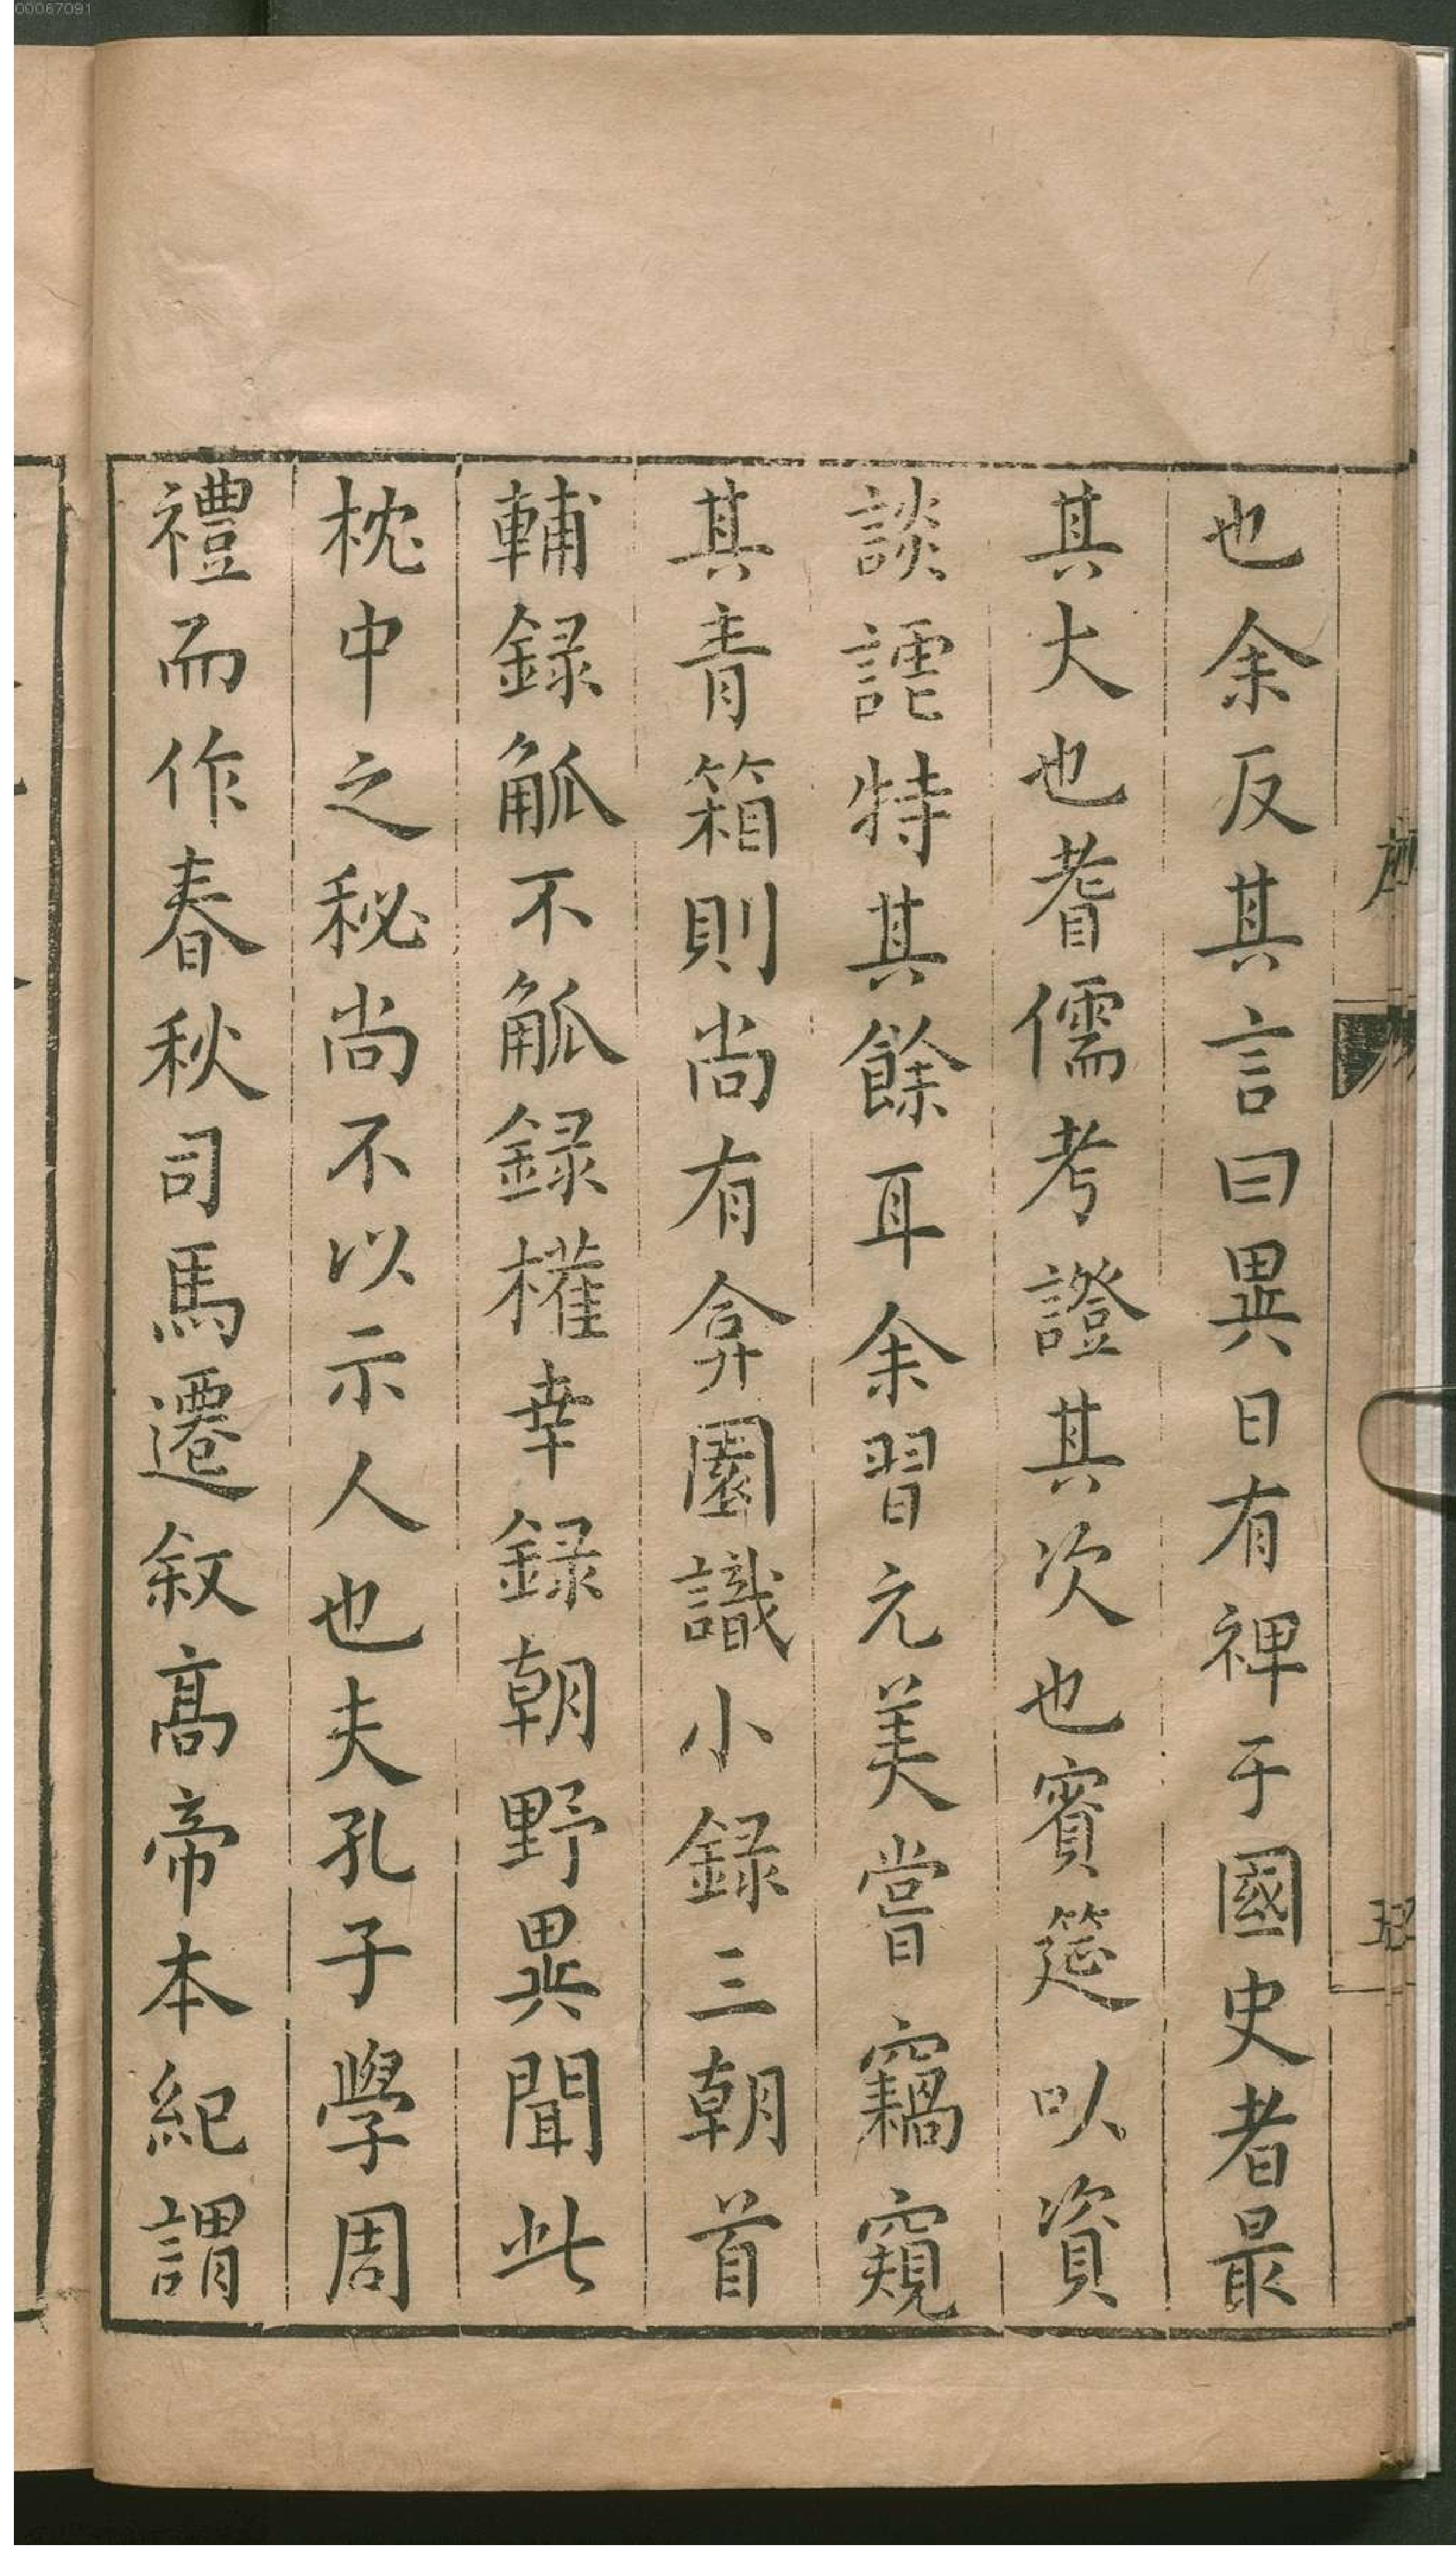 00067091
也余反其言曰異日有裨于國史者最
其大也耆儒考證其次也賓筵以資
談謔特其餘耳余習元美嘗竊窺
其青箱則尚有弇園識小録三朝首
輔録觚不觚録權幸録朝野異聞此
枕中之秘尚不以示人也夫孔子學周
禮而作春秋司馬遷叙髙帝本紀謂